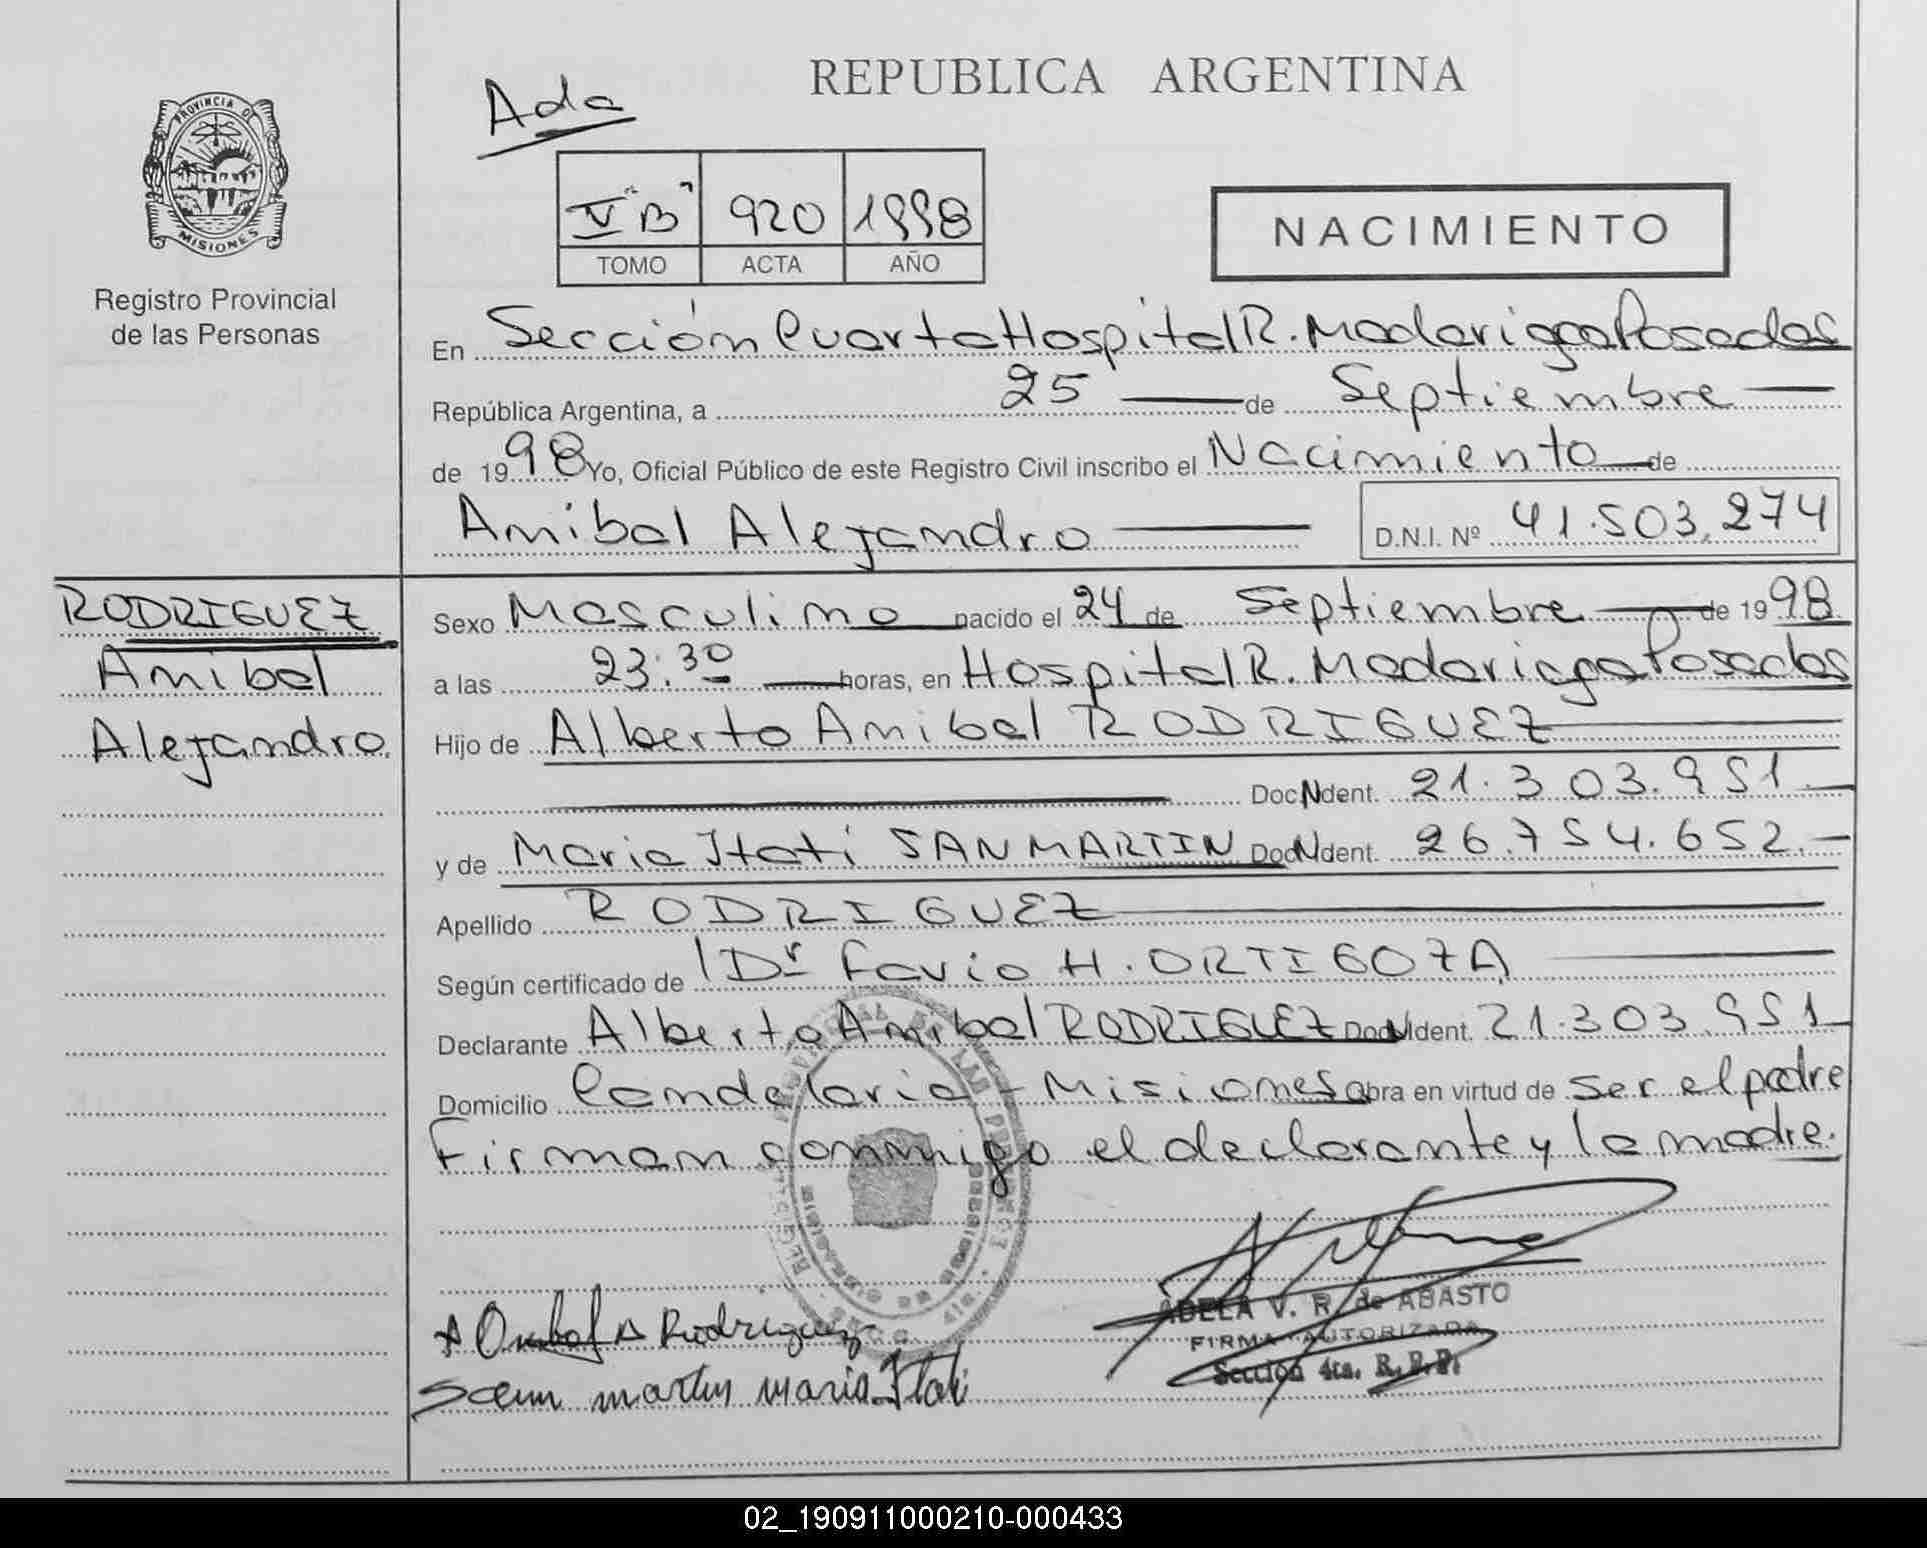 REPUBLICA ARGENTINA
Ada
PROVINCIA DE
MISIONES
Registro Provincial
de las Personas
V "B" 920 1998
TOMO ACTA AÑO
NACIMIENTO
En Sección Cuarta Hospital R. Madariaga Posadas
República Argentina, a 25 de Septiembre
de 1998 Yo, Oficial Público de este Registro Civil inscribo el Nacimiento de
Anibal Alejandro D.N.I. Nº 41.503.274
RODRIGUEZ
Anibal
Alejandro
Sexo Masculino nacido el 24 de Septiembre de 1998
a las 23:30 horas, en Hospital R. Madariaga Posadas
Hijo de Alberto Anibal RODRIGUEZ
Doc. N Ident. 21.303.951
y de Maria Itati SAN MARTIN Doc. N Ident. 26.754.652.-
Apellido RODRIGUEZ
Según certificado de Dr Favio H. ORTIGOZA
Declarante Alberto Anibal RODRIGUEZ Doc. N Ident. 21.303.951
Domicilio Candelaria - Misiones obra en virtud de ser el padre
Firman conmigo el declarante y la madre.
ADELA V. R. de ABASTO
FIRMA AUTORIZADA
Sección 4ta. R.P.P.
A Rodriguez
San martin maria Itati
02_190911000210-000433